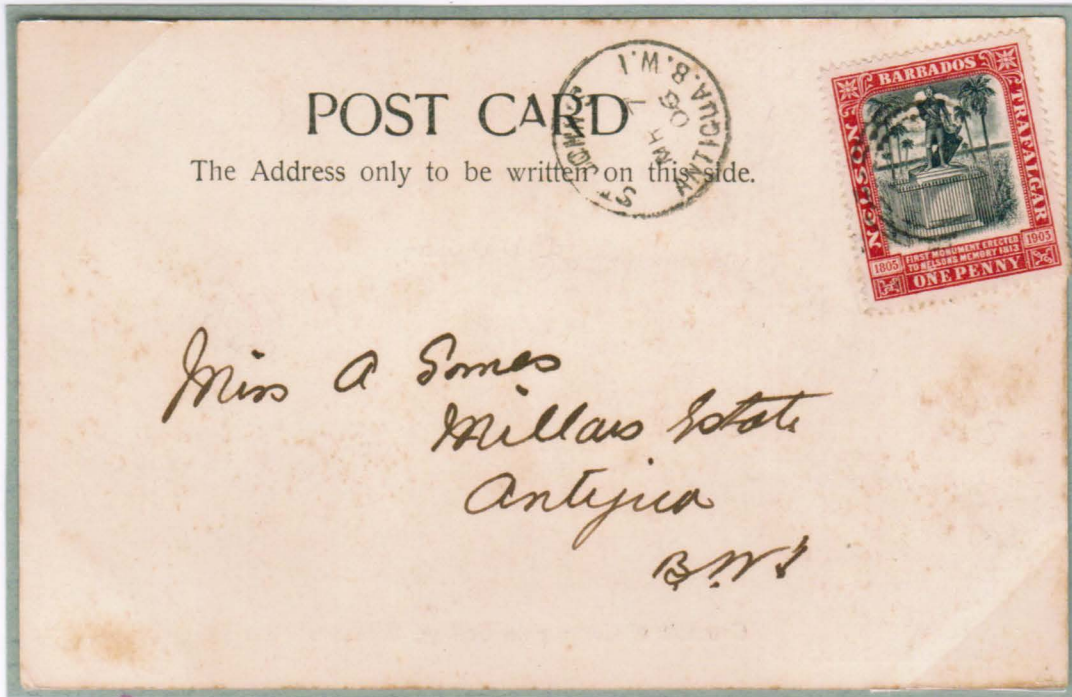 POST CARD
The Address only to be written on this side.
ST JOHN'S
MR 7
06
ANTIGUA.B.W.I
BARBADOS
NELSON
TRAFALGAR
1805
FIRST MONUMENT ERECTED
TO NELSONS MEMORY 1813
1905
ONE PENNY
Miss A Gomes
Millars Estate
Antigua
B.W.I